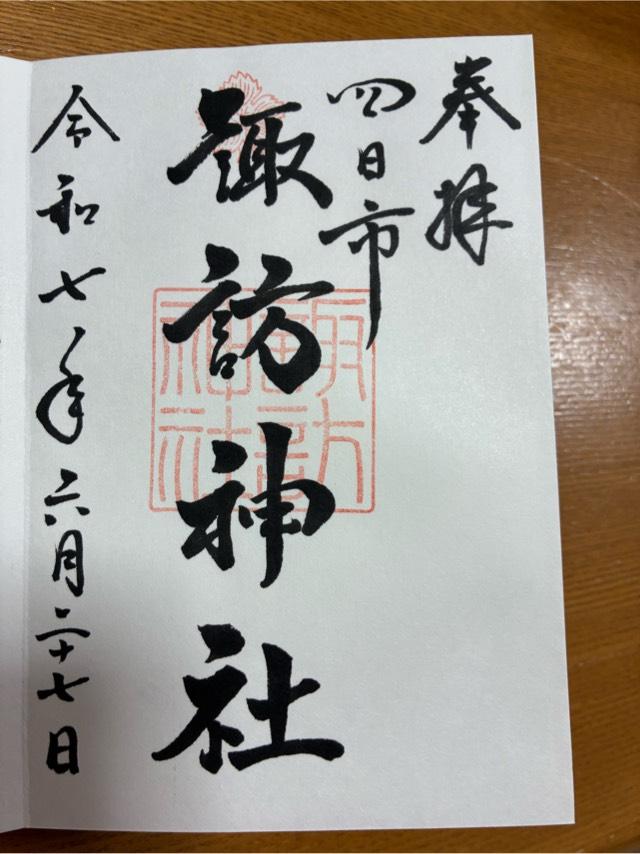 奉拝
四日市
諏訪神社
諏訪神社
令和七年六月二十七日